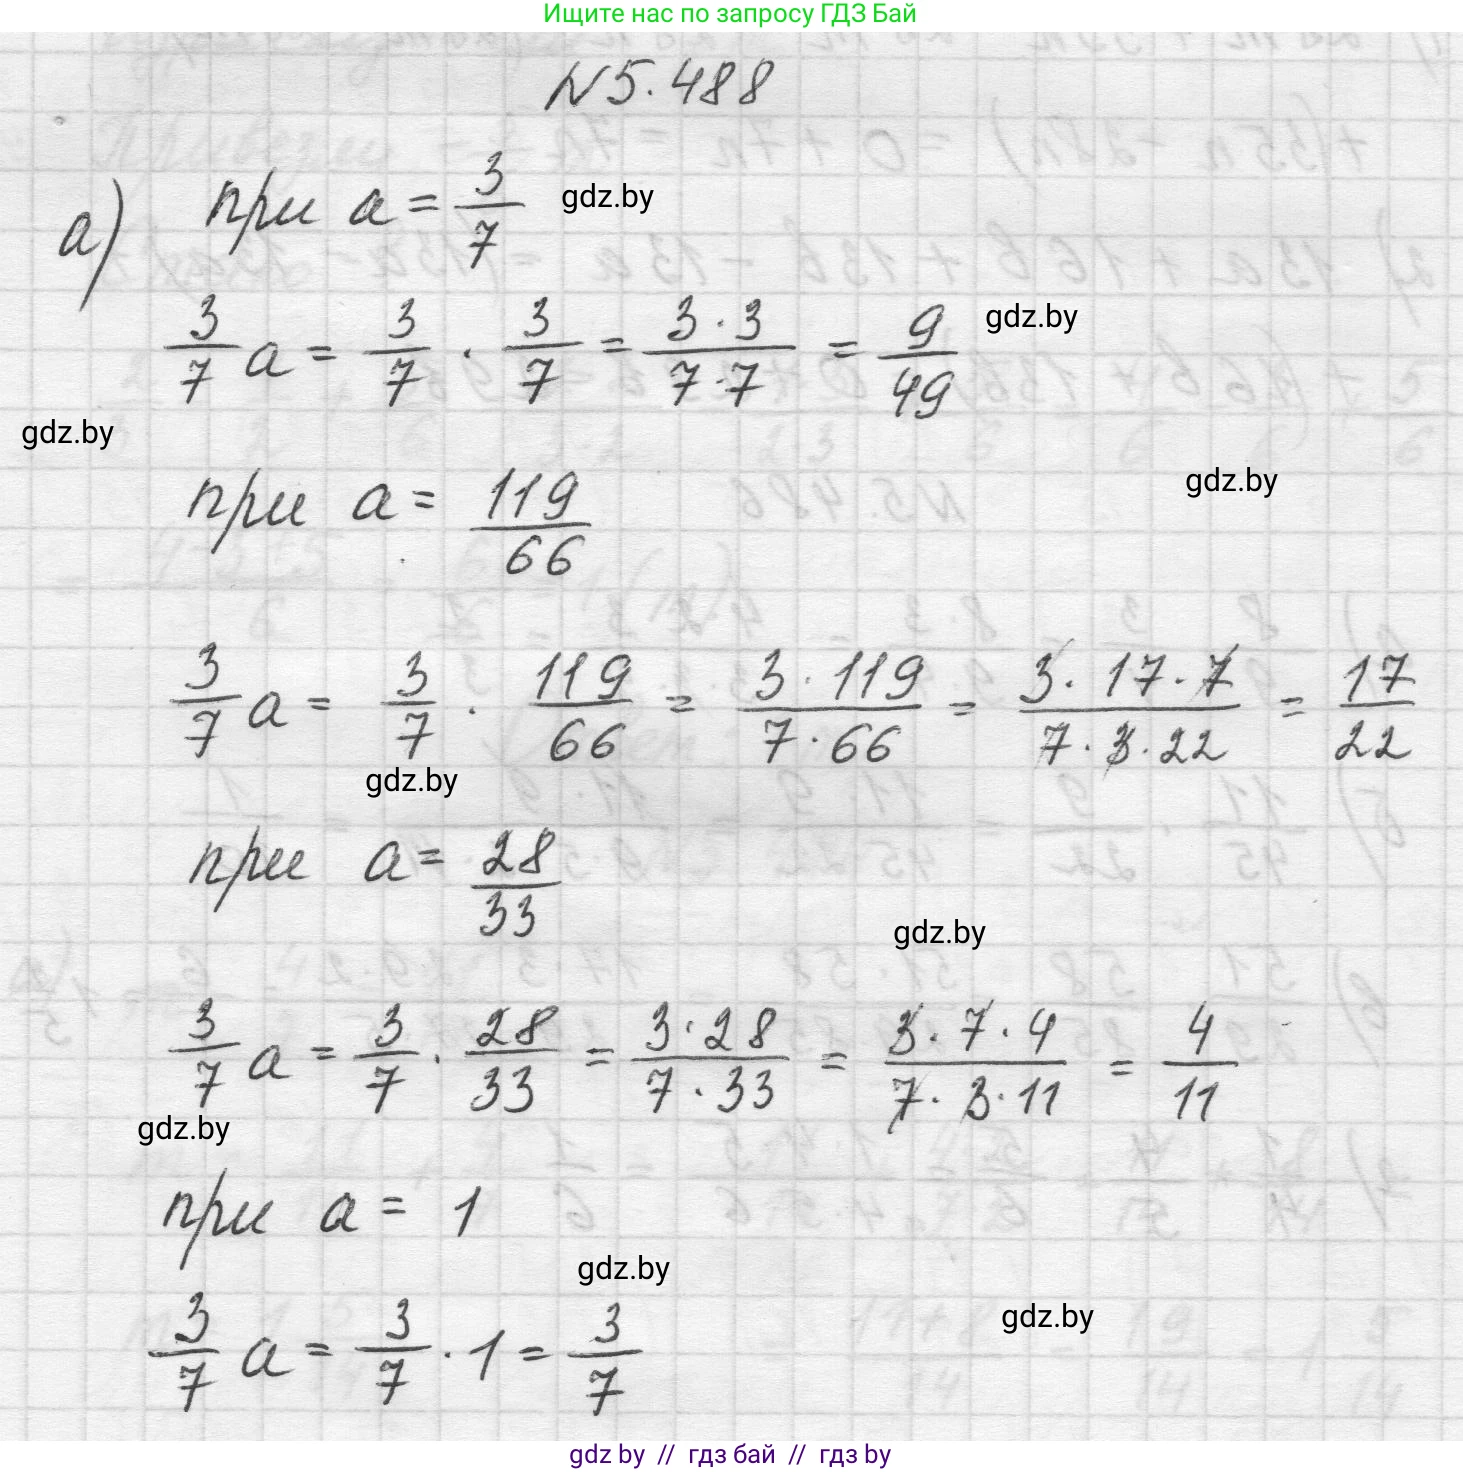 Ищите нас по запросу ГДЗ Бай
N5.488
а) при a = 3/7
gdz.by
3/7 a = 3/7 · 3/7 = 3·3/7·7 = 9/49
gdz.by
gdz.by
при a = 119/66
gdz.by
3/7 a = 3/7 · 119/66 = 3·119/7·66 = 3·17·7/7·3·22 = 17/22
gdz.by
при a = 28/33
gdz.by
3/7 a = 3/7 · 28/33 = 3·28/7·33 = 3·7·4/7·3·11 = 4/11
gdz.by
при a = 1
gdz.by
3/7 a = 3/7 · 1 = 3/7
gdz.by
gdz by // гдз бай // гдз by